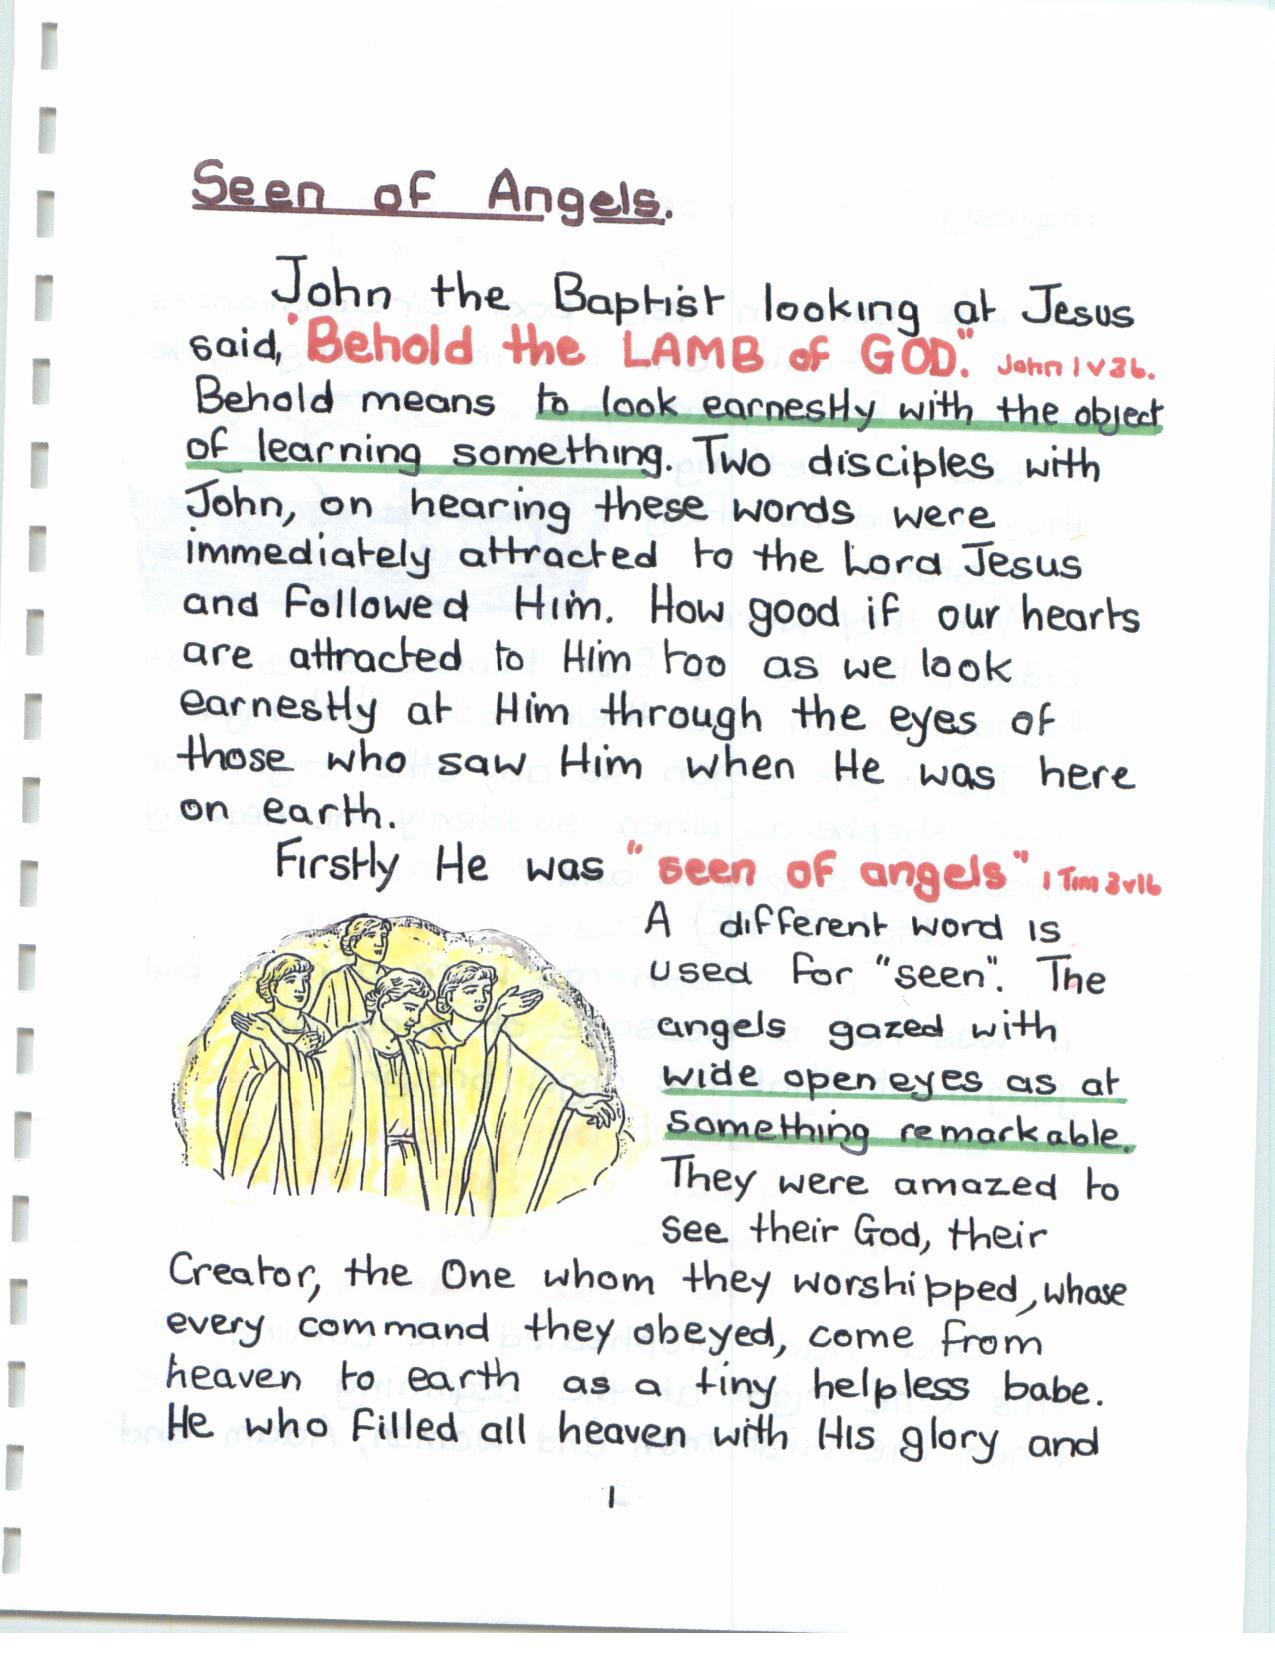 Seen of Angels.
John the Baptist looking at Jesus
said, "Behold the LAMB of GOD." John 1 v 36.
Behold means to look earnestly with the object
of learning something. Two disciples with
John, on hearing these words were
immediately attracted to the Lord Jesus
and followed Him. How good if our hearts
are attracted to Him too as we look
earnestly at Him through the eyes of
those who saw Him when He was here
on earth.
Firstly He was "seen of angels" 1 Tim 3 v 16
A different word is
used for "seen". The
angels gazed with
wide open eyes as at
something remarkable.
They were amazed to
see their God, their
Creator, the One whom they worshipped, whose
every command they obeyed, come from
heaven to earth as a tiny helpless babe.
He who filled all heaven with His glory and
1